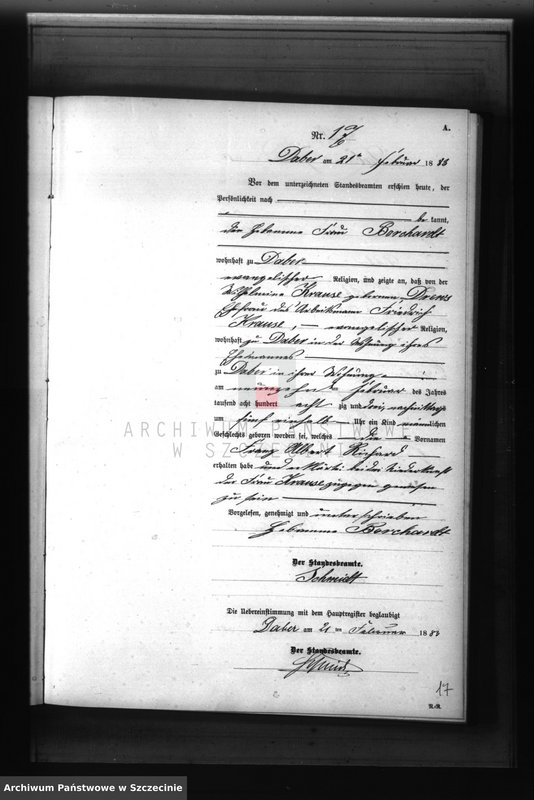 A.
Nr. 17
Daber am 21ten Februar 1883
Vor dem unterzeichneten Standesbeamten erschien heute, der
Persönlichkeit nach
be kannt,
die Hebamme Frau Borchardt
wohnhaft zu Daber
evangelischer Religion, und zeigte an, daß von der
Wilhelmine Krause geborenen Drews
Ehefrau des Arbeitsmann Friedrich
Krause, evangelischer Religion,
wohnhaft zu Daber in der Wohnung ihres
Ehemannes
zu Daber in ihrer Wohnung
am neunzehnten Februar des Jahres
tausend acht hundert acht zig und drei, nachmittags
um fünf einhalb Uhr ein Kind männlichen
Geschlechts geboren worden sei, welches die Vornamen
Franz Albert Richard
erhalten habe und bei der Niederkunft
der Frau Krause zugegen gewesen
zu sein
Vorgelesen, genehmigt und unterschrieben
Hebamme Borchardt
Der Standesbeamte.
Schmidt
Die Uebereinstimmung mit dem Hauptregister beglaubigt
Daber am 21 ten Februar 1883
Der Standesbeamte.
Schmidt
17
N.-R.
ARCHIWUM PAŃSTWOWE
W SZCZECINIE
Archiwum Państwowe w Szczecinie